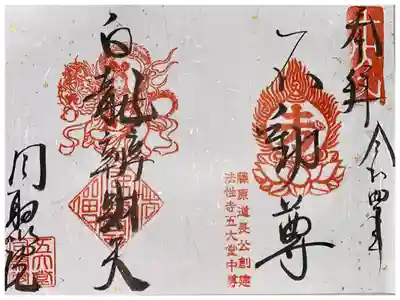 奉拝
令和四年
不動尊
藤原道長公創建
法性寺五大堂中尊
白龍辨財天
同聚院
五大堂